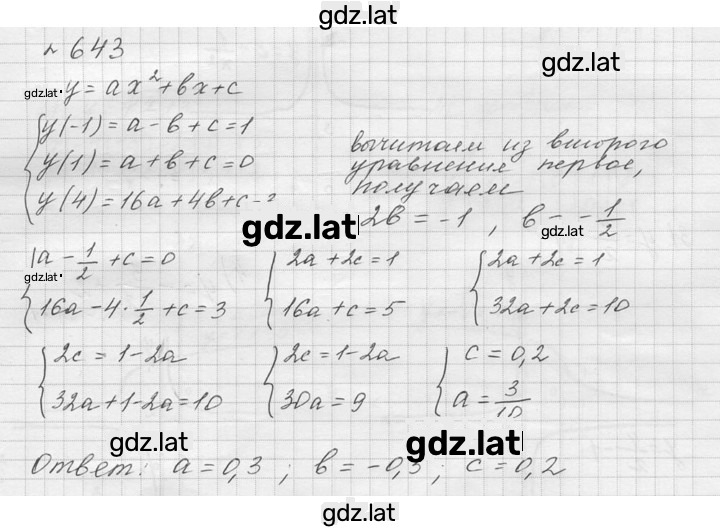 gdz.lat
№ 643
gdz.lat
gdz.lat y = ax² + bx + c
y(-1) = a - b + c = 1
y(1) = a + b + c = 0
y(4) = 16a + 4b + c =
вычитаем из второго
уравнения первое,
получаем
gdz.lat
2b = -1 , b = -1/2
gdz.lat
a - 1/2 + c = 0
gdz.lat
16a - 4·1/2 + c = 3
2a + 2c = 1
16a + c = 5
2a + 2c = 1
32a + 2c = 10
2c = 1 - 2a
32a + 1 - 2a = 10
2c = 1 - 2a
30a = 9
c = 0,2
a = 3/10
gdz.lat
gdz.lat
Ответ: a = 0,3 ; b = -0,5 ; c = 0,2
gdz.lat